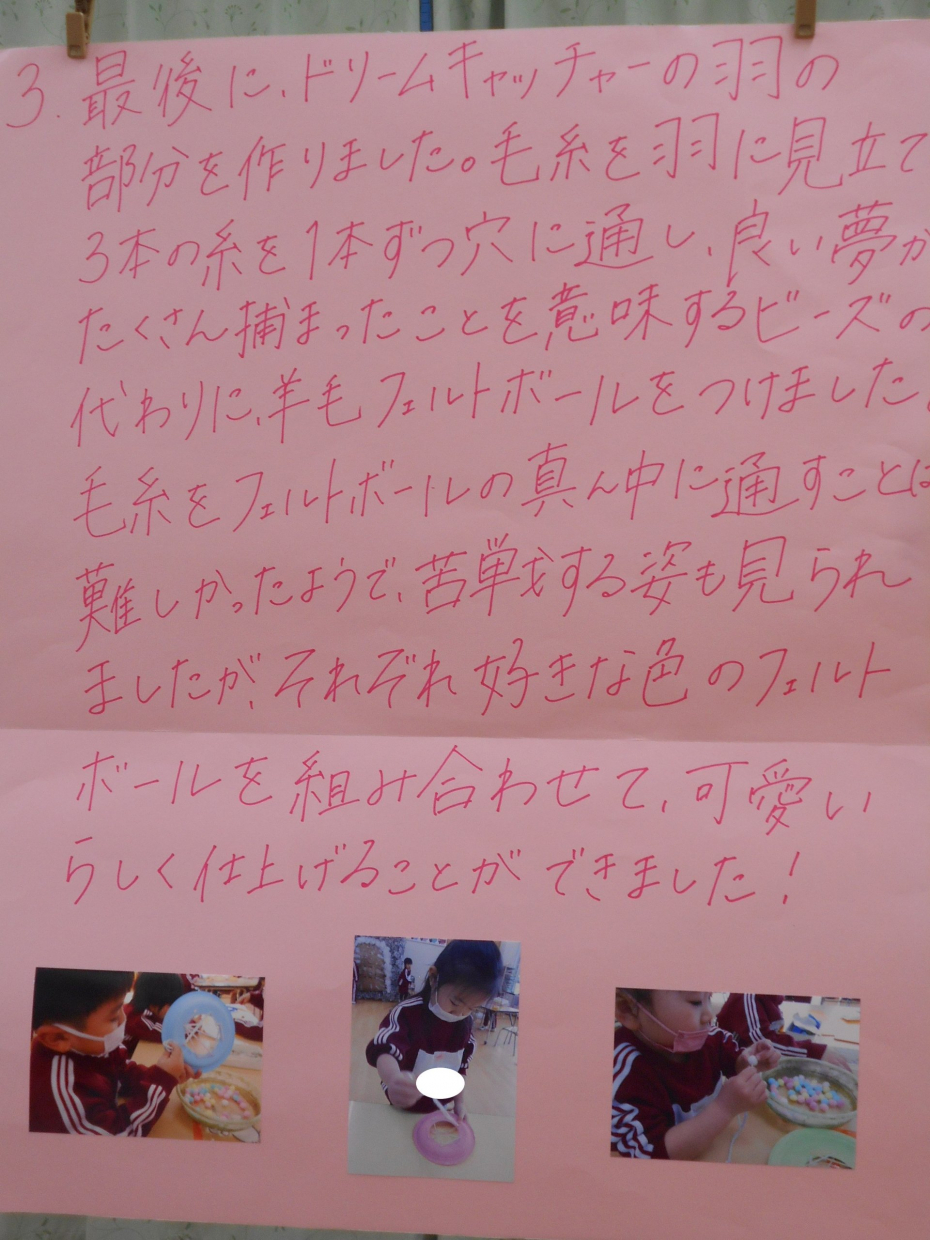 3. 最後に、ドリームキャッチャーの羽の
部分を作りました。毛糸を羽に見立て
3本の糸を1本ずつ穴に通し、良い夢が
たくさん捕まったことを意味するビーズの
代わりに、羊毛フェルトボールをつけました。
毛糸をフェルトボールの真ん中に通すことは
難しかったようで、苦戦する姿も見られ
ましたが、それぞれ好きな色のフェルト
ボールを組み合わせて、可愛い
らしく仕上げることができました!